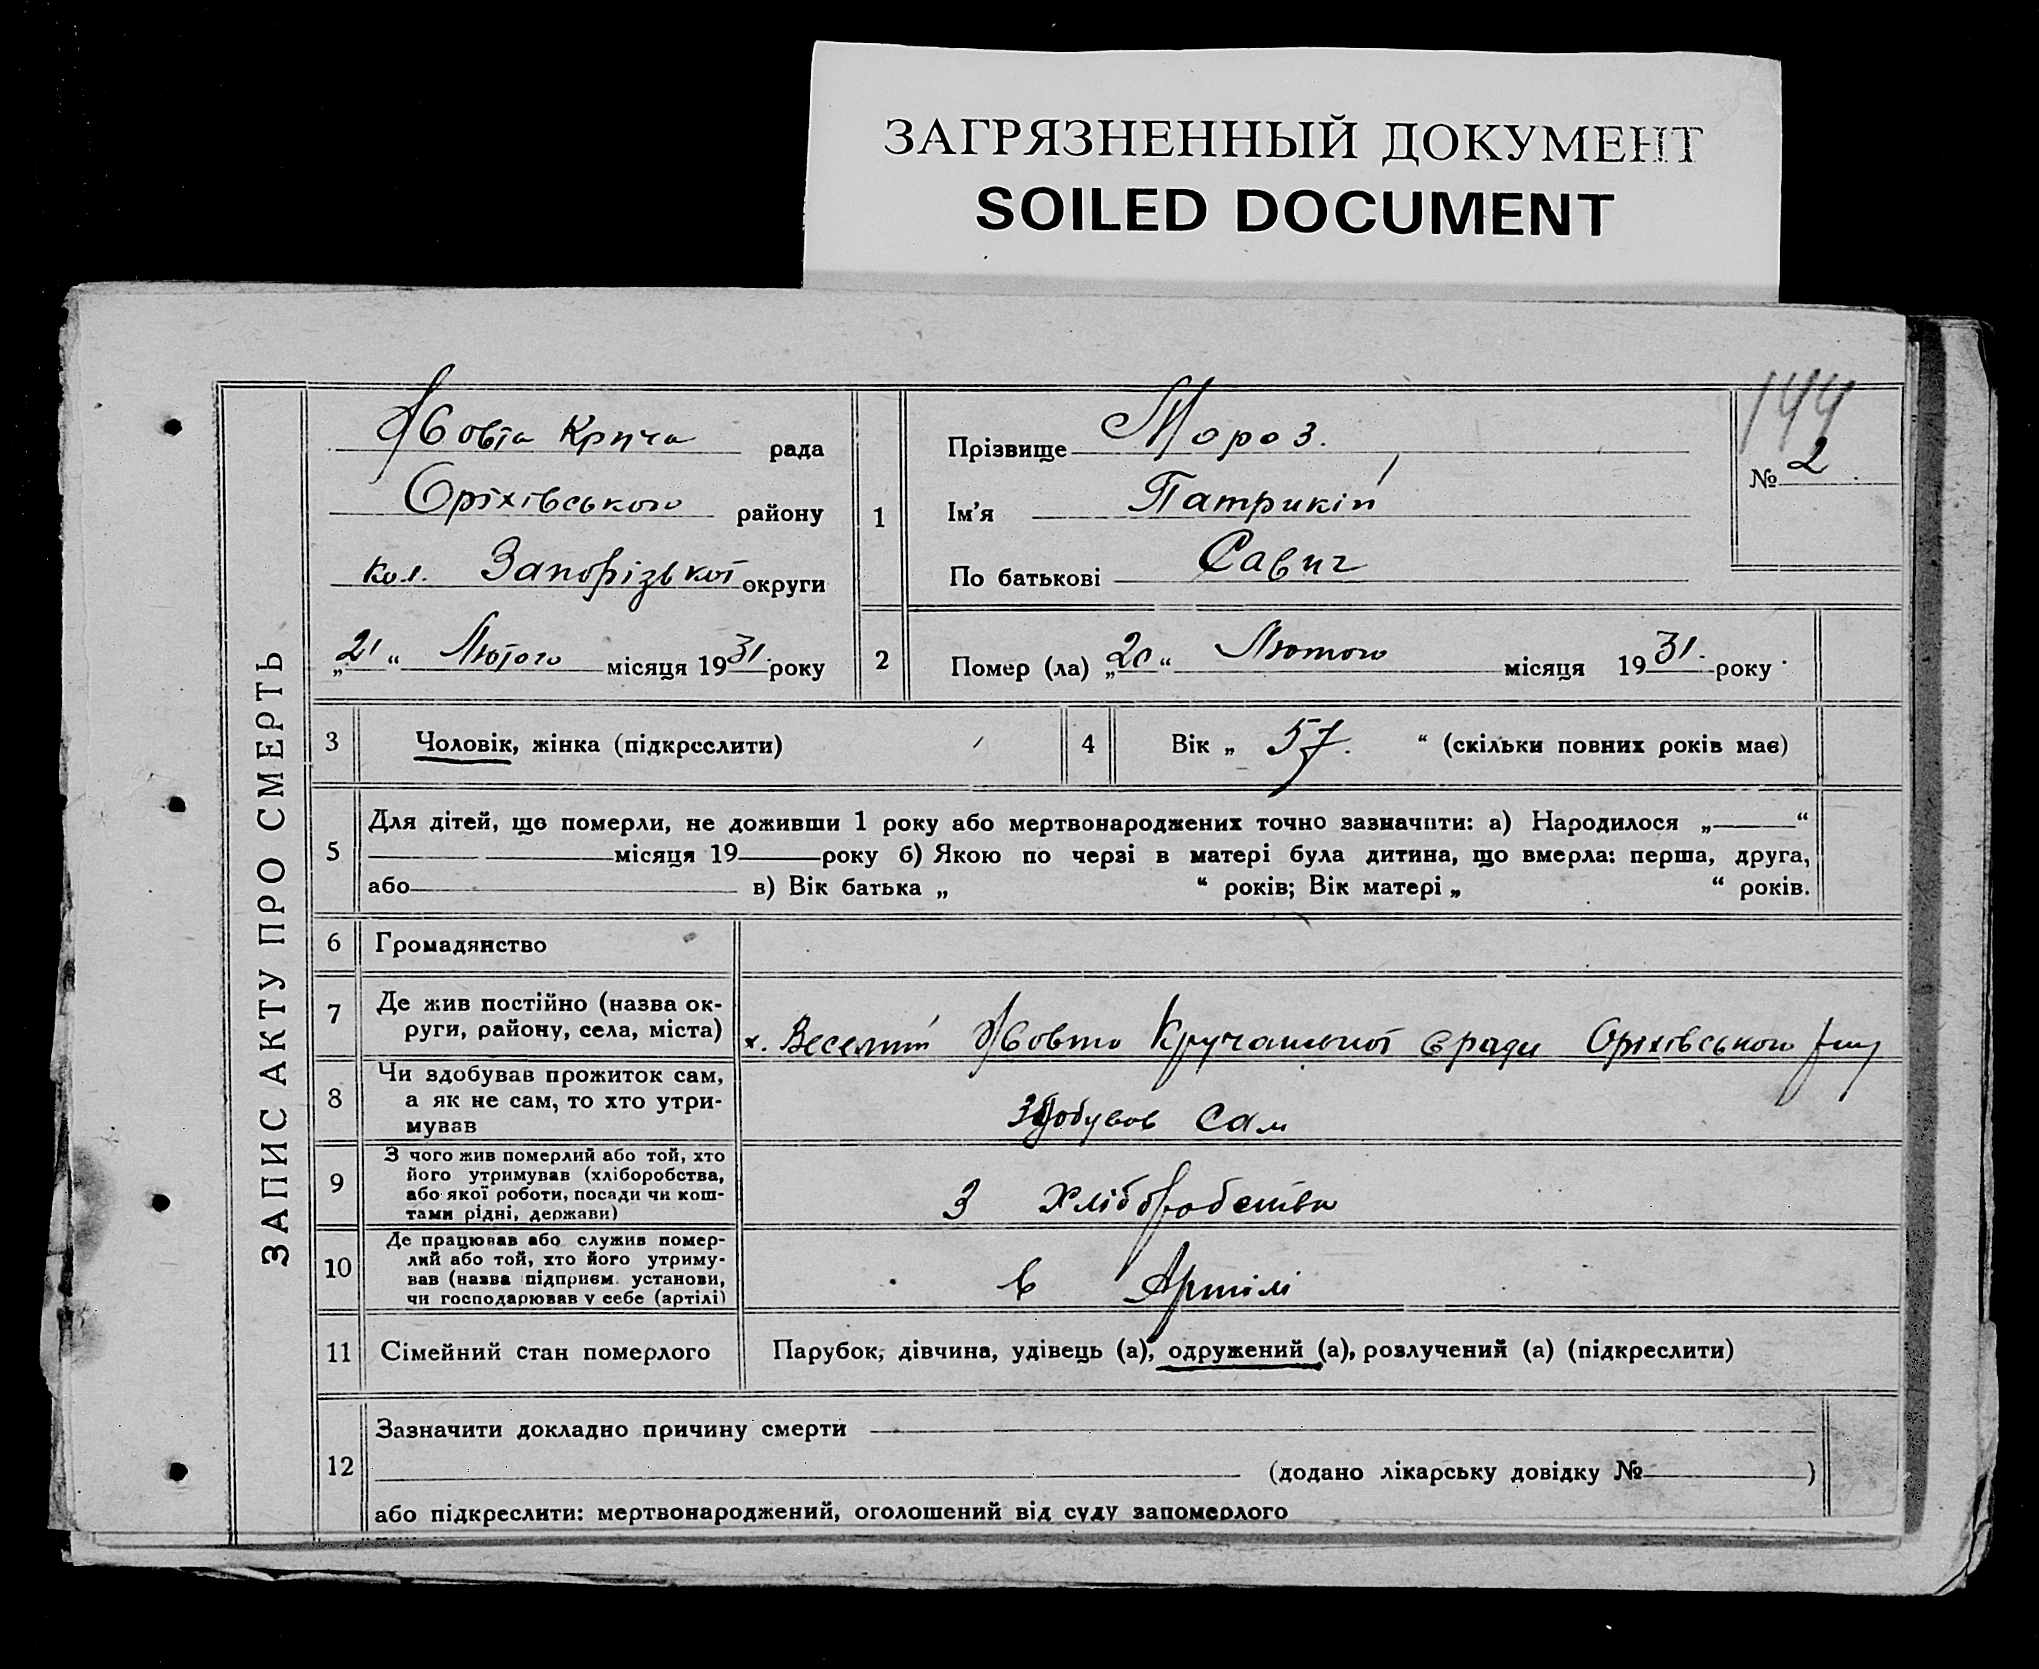 ЗАГРЯЗНЕННЫЙ ДОКУМЕНТ
SOILED DOCUMENT
ЗАПИС АКТУ ПРО СМЕРТЬ
144
Жовта Круча рада
Оріхівського району
кол. Запорізької округи
„21“ Лютого місяця 1931. року
1
Прізвище Мороз.
Ім'я Патрикій
По батькові Савич
№ 2
2
Помер (ла) „20“ Лютого місяця 1931. року
3 Чоловік, жінка (підкреслити)
4 Вік „57.“ (скільки повних років має)
5
Для дітей, що померли, не доживши 1 року або мертвонароджених точно зазначити: а) Народилося „ “
місяця 19 року б) Якою по черзі в матері була дитина, що вмерла: перша, друга,
або в) Вік батька „ “ років; Вік матері „ “ років.
6 Громадянство
7 Де жив постійно (назва ок-
руги, району, села, міста)
х. Веселий Жовто Кручанської ради Оріхівського
8 Чи здобував прожиток сам,
а як не сам, то хто утри-
мував
Здобував Сам
9 З чого жив померлий або той, хто
його утримував (хліборобства,
або якої роботи, посади чи кош-
тами рідні, держави)
З Хліборобства
10 Де працював або служив помер-
лий або той, хто його утриму-
вав (назва підприєм. установи,
чи господарював у себе (артілі)
в Артілі
11 Сімейний стан померлого
Парубок, дівчина, удівець (а), одружений (а), розлучений (а) (підкреслити)
12
Зазначити докладно причину смерти
(додано лікарську довідку № )
або підкреслити: мертвонароджений, оголошений від суду запомерлого